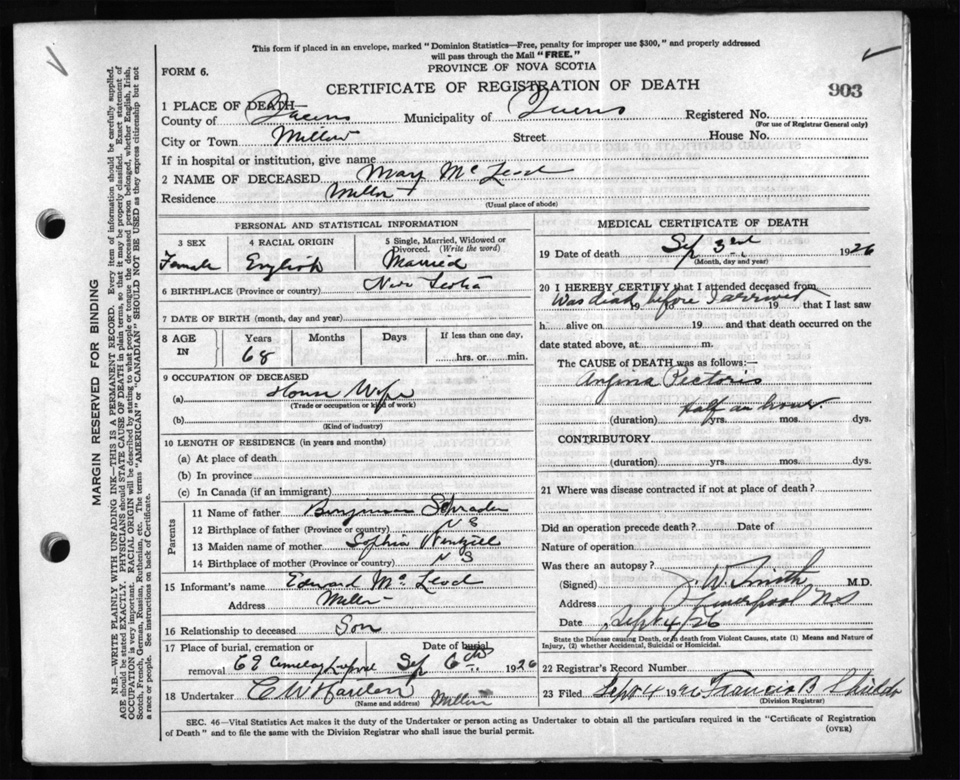 This form if placed in an envelope, marked "Dominion Statistics—Free, penalty for improper use $300," and properly addressed
will pass through the Mail "FREE."
PROVINCE OF NOVA SCOTIA
FORM 6.
CERTIFICATE OF REGISTRATION OF DEATH
903
1 PLACE OF DEATH—
County of Queens Municipality of Queens Registered No.
(For use of Registrar General only)
City or Town Street House No.
If in hospital or institution, give name
2 NAME OF DECEASED Mary McLeod
Residence
(Usual place of abode)
PERSONAL AND STATISTICAL INFORMATION
3 SEX 4 RACIAL ORIGIN 5 Single, Married, Widowed or
Divorced. (Write the word)
Female English Married
6 BIRTHPLACE (Province or country) Nova Scotia
7 DATE OF BIRTH (month, day and year)
8 AGE IN Years Months Days If less than one day,
68 hrs. or min.
9 OCCUPATION OF DECEASED
(a) House Wife
(Trade or occupation or kind of work)
(b)
(Kind of industry)
10 LENGTH OF RESIDENCE (in years and months)
(a) At place of death
(b) In province
(c) In Canada (if an immigrant)
Parents
11 Name of father Benjamin
12 Birthplace of father (Province or country) N S
13 Maiden name of mother Sophia
14 Birthplace of mother (Province or country) N S
15 Informant's name Edward McLeod
Address
16 Relationship to deceased Son
17 Place of burial, cremation or Date of burial
removal Sep 6th 1926
18 Undertaker
(Name and address)
MEDICAL CERTIFICATE OF DEATH
19 Date of death Sep 3rd 1926
(Month, day and year)
20 I HEREBY CERTIFY that I attended deceased from
Was dead before I arrived 19 19 that I last saw
h alive on 19 and that death occurred on the
date stated above, at m.
The CAUSE of DEATH was as follows:—
Angina Pectoris
Half an hour
(duration) yrs. mos. dys.
CONTRIBUTORY
(duration) yrs. mos. dys.
21 Where was disease contracted if not at place of death?
Did an operation precede death? Date of
Nature of operation
Was there an autopsy?
(Signed) J. W. Smith M.D.
Address Liverpool N S
Date Sept 4/26
State the Disease causing Death, or in death from Violent Causes, state (1) Means and Nature of
Injury, (2) whether Accidental, Suicidal or Homicidal.
22 Registrar's Record Number
23 Filed Sept 4 1926 Francis B
(Division Registrar)
SEC. 46—Vital Statistics Act makes it the duty of the Undertaker or person acting as Undertaker to obtain all the particulars required in the "Certificate of Registration
of Death" and to file the same with the Division Registrar who shall issue the burial permit.
(OVER)
MARGIN RESERVED FOR BINDING
N.B.—WRITE PLAINLY WITH UNFADING INK—THIS IS A PERMANENT RECORD. Every item of information should be carefully supplied.
AGE should be stated EXACTLY. PHYSICIANS should STATE CAUSE OF DEATH in plain terms, so that it may be properly classified. Exact statement of
OCCUPATION is very important. RACIAL ORIGIN will be described by stating to what people or tongue the deceased person belonged, whether English, Irish,
Scotch, French, German, Russian, Ruthenian, etc. The terms "AMERICAN" or "CANADIAN" SHOULD NOT BE USED as they express citizenship but not
a race or people. See instructions on back of Certificate.